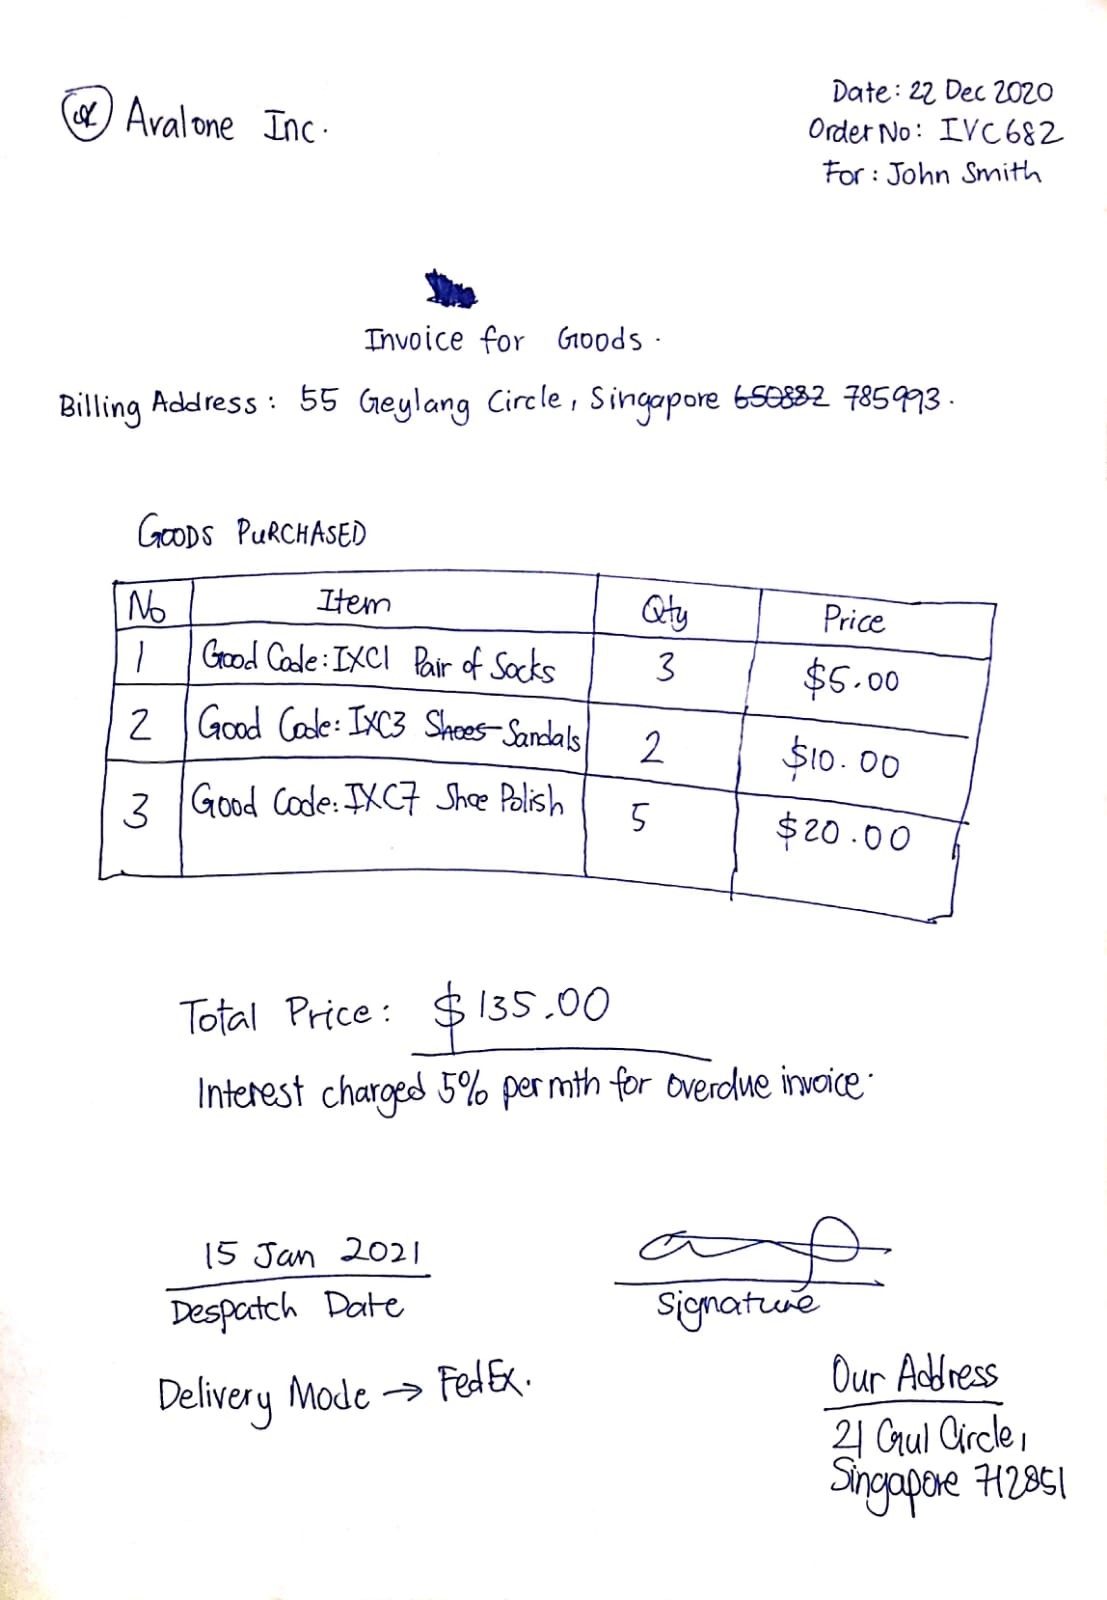 Avalone Inc.
Date: 22 Dec 2020
Order No: IVC682
For: John Smith
Invoice for Goods.
Billing Address: 55 Geylang Circle, Singapore 650882 785993.
GOODS PURCHASED
No Item Qty Price
1 Good Code: IXC1 Pair of Socks 3 $5.00
2 Good Code: IXC3 Shoes Sandals 2 $10.00
3 Good Code: IXC7 Shoe Polish 5 $20.00
Total Price: $135.00
Interest charged 5% per mth for overdue invoice.
15 Jan 2021
Despatch Date
Signature
Delivery Mode → FedEx.
Our Address
21 Gul Circle,
Singapore 712851